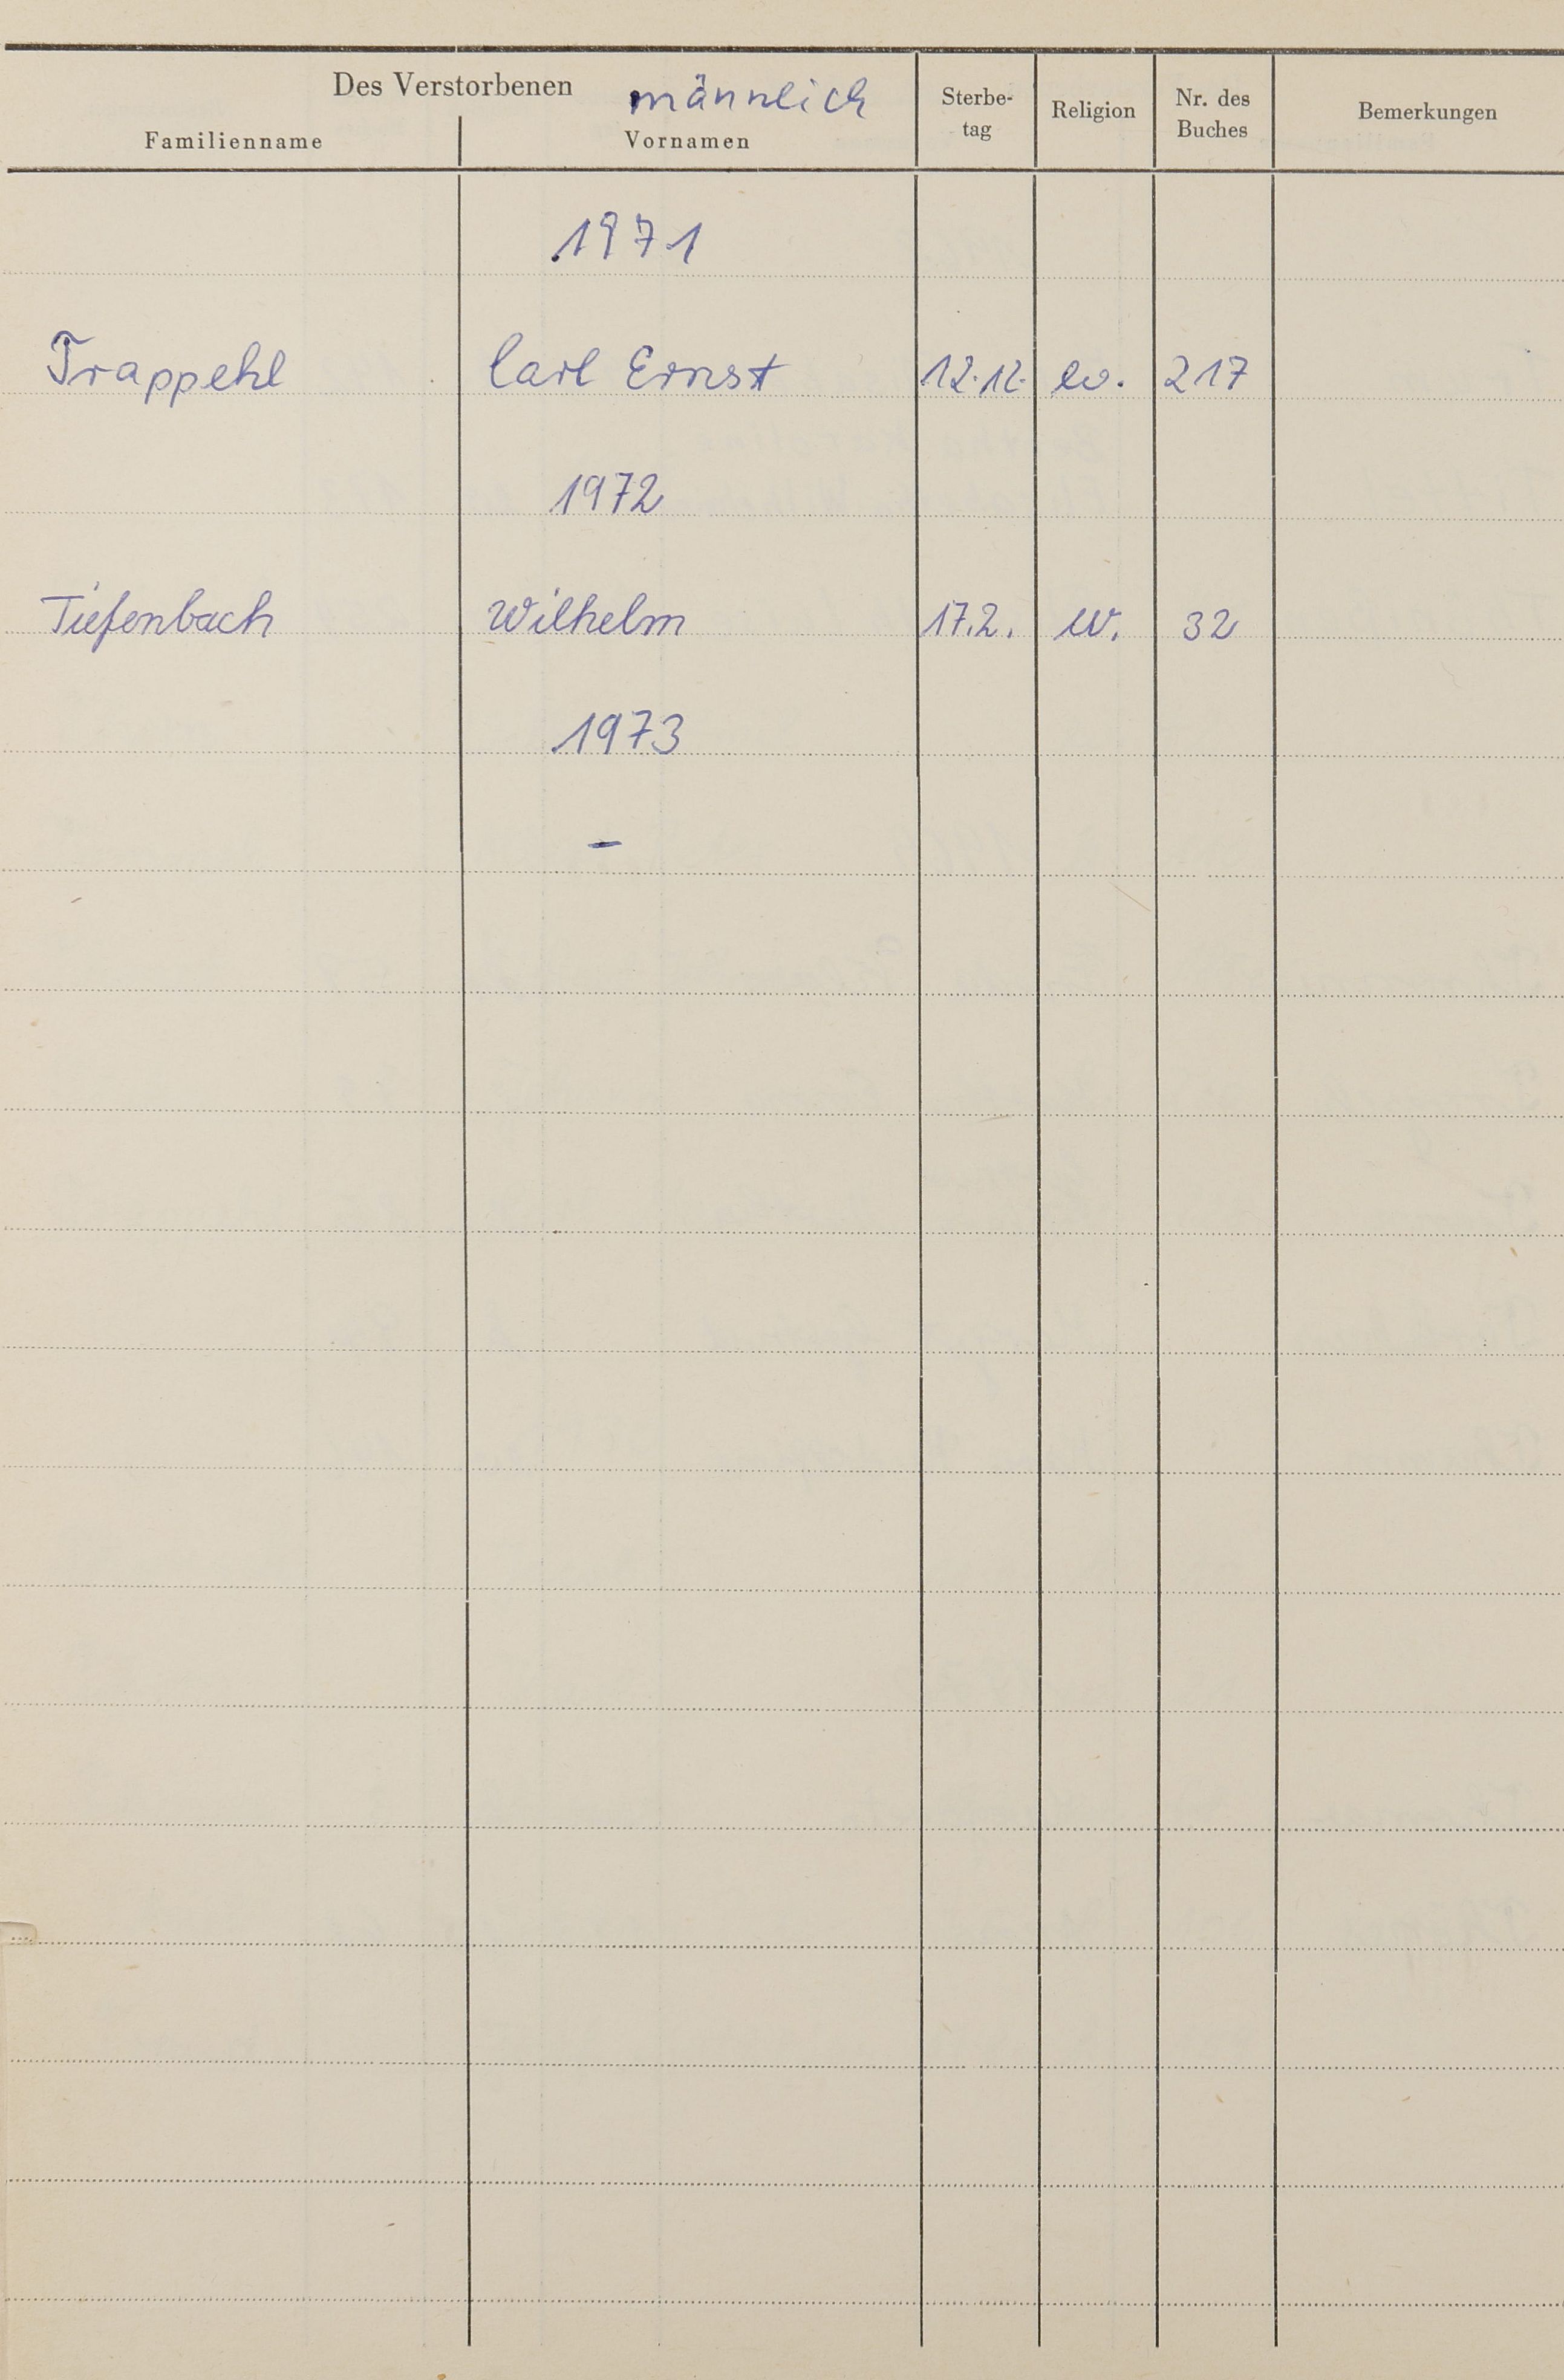 Des Verstorbenen männlich
Familienname Vornamen Sterbe-tag Religion Nr. des Buches Bemerkungen
1971
Trappehl Carl Ernst 12.12. ev. 217
1972
Tiefenbach Wilhelm 17.2. ev. 32
1973
-